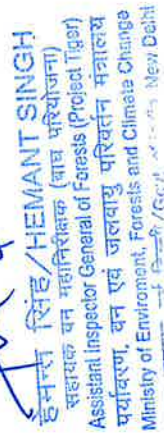 हेमन्त सिंह/HEMANT SINGH
सहायक वन महानिरीक्षक (बाघ परियोजना)
Assistant Inspector General of Forests (Project Tiger)
पर्यावरण, वन एवं जलवायु परिवर्तन मंत्रालय
Ministry of Enviroment, Forests and Climate Change
New Delhi